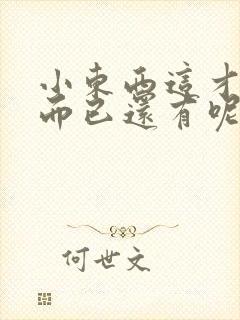 小東西這才
而已還有呢
何世文